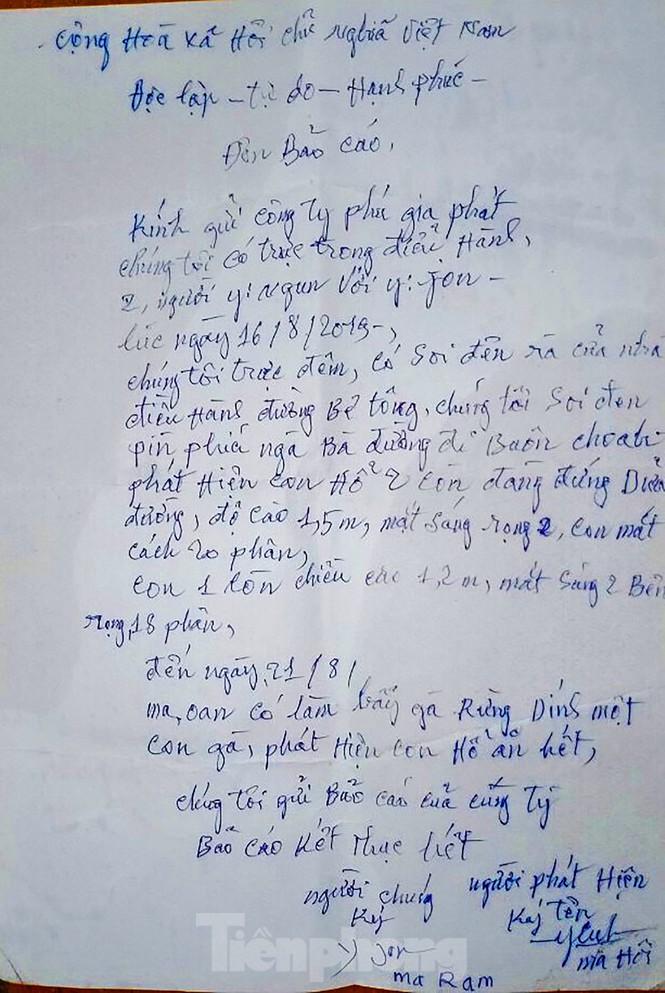 Cộng Hoà Xã Hội chủ nghĩã Việt Nam
Độc lập - tự do - Hạnh phúc -
Đơn Bảo cáo,
Kính gửi công ty phú gia phát
chúng tôi có trực trong điều Hành,
2, người y: Ngun với y: Jon -
lúc ngày 16/8/2019-,
chúng tôi trực đêm, có Soi đèn ra của nhà
điều Hành đường Bê tông, chúng tôi Soi đèn
pin phía ngã Bà đường đi Buôn
phát Hiện con Hổ 2 con đang đứng Dưới
đường, độ cao 1,5m, mắt sáng rọng 2, con mắt
cách 20 phân,
con 1 còn chiều cao 1,2m, mắt sáng 2 Bên
rọng, 18 phân,
đến ngày, 21/8/
ma, oan có làm bẫy gà Rừng Dính một
con gà, phát Hiện con Hổ ăn hết,
chúng tôi gửi Bảo cáo của công Ty
Bảo cáo Kết thúc hết
người chúng người phát Hiện
Ký Ký tên
y Jon
ma Hồi
ma Ram
Tiênphong